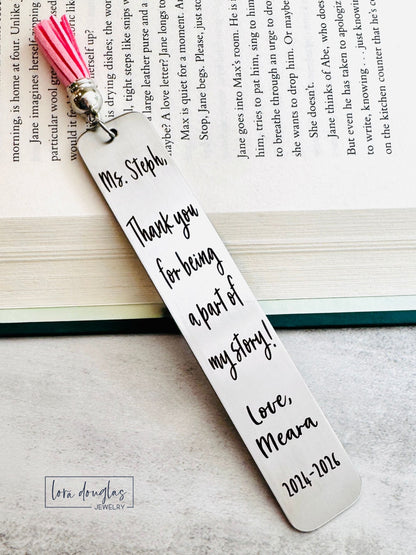 Ms. Steph,
Thank you
for being
a part of
my story!
Love,
Meara
2024-2026
morning, is home at four. Unlike
Jane imagines herself
particular wool gree
would
of drying dishes; the wor
tight steps like mups w
a large leather purse and a
maybe? A love letter? Jane longs to
Max is quiet for a moment. Jan
Stop, Jane begs. Please, just stop
Jane goes into Max's room. He is
him, tries to pat him, sing to him
to breathe him through an urge
she wants to drop him. Or maybe
She doesn't.
Jane thinks of Abe, who does
But even he has taken to apologiz
to write, knowing . . . just know
on the kitchen counter that he's c
lora douglas
JEWELRY